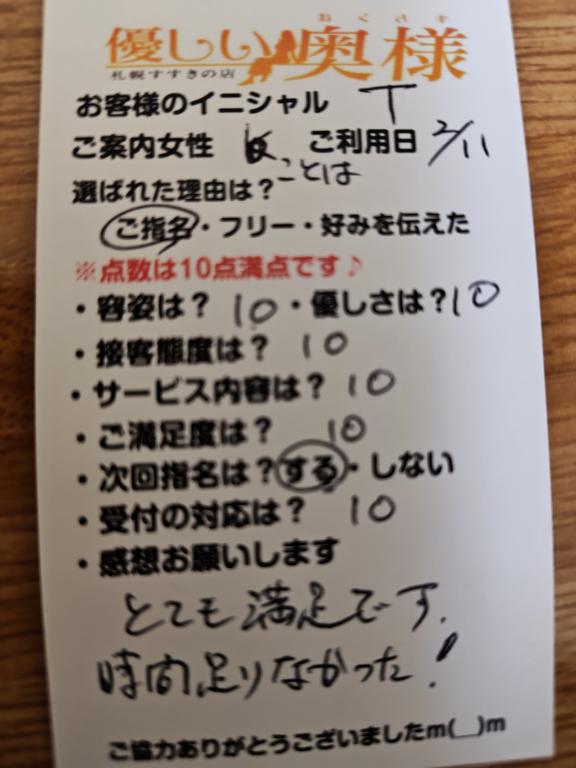 おくさま
優しい奥様
札幌すすきの店
お客様のイニシャル T
ご案内女性 ことは ご利用日 2/11
選ばれた理由は?
ご指名・フリー・好みを伝えた
※点数は10点満点です♪
・容姿は? 10 ・優しさは? 10
・接客態度は? 10
・サービス内容は? 10
・ご満足度は? 10
・次回指名は?する・しない
・受付の対応は? 10
・感想お願いします
とても満足です.
時間足りなかった!
ご協力ありがとうございましたm(__)m